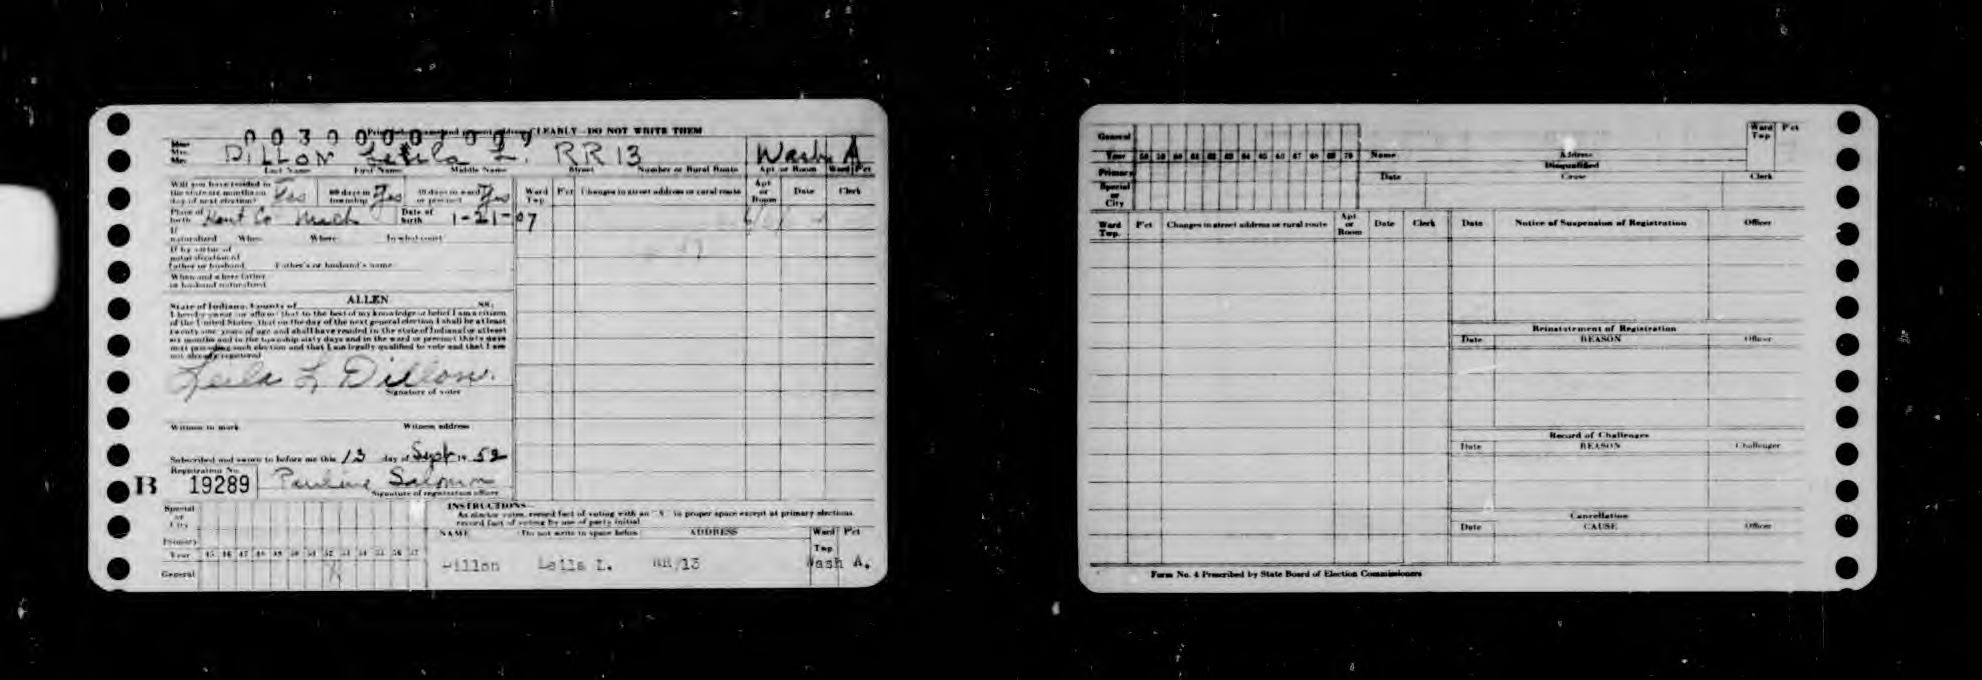 00300001009
Print last name and present address CLEARLY—DO NOT WRITE THEM
Miss
Mrs.
Mr.
DILLON Leila L. RR 13 Wash A
Last Name First Name Middle Name Street Number or Rural Route Apt or Room Ward Pct
Will you have resided in the state six months on day of next election? Yes 60 days in township Yes 30 days in ward or precinct Yes
Place of birth Kent Co Mich Date of birth 1-21-07
If naturalized When Where In what court
If by virtue of naturalization of father or husband Father's or husband's name
When and where father or husband naturalized
State of Indiana, County of ALLEN SS:
I hereby swear (or affirm) that to the best of my knowledge or belief I am a citizen
of the United States, that on the day of the next general election I shall be at least
twenty-one years of age and shall have resided in the state of Indiana for at least
six months and in the township sixty days and in the ward or precinct thirty days
next preceding such election and that I am legally qualified to vote and that I am
not already registered
Leila L Dillon.
Signature of voter
Witness to mark Witness address
Subscribed and sworn to before me this 13 day of Sept 19 52
Registration No.
B 19289 Pauline
Signature of registration officer
Ward Twp. P'ct Changes in street address or rural route Apt or Room Date Clerk
Special or City
Primary
Year 45 46 47 48 49 50 51 52 53 54 55 56 57
General X
INSTRUCTIONS—
As elector votes, record fact of voting with an "X" in proper space except at primary elections
record fact of voting by use of party initial
NAME (Do not write in space below) ADDRESS Ward Twp P'ct
Dillon Leila L. RR 13 Wash A.
General
Year 58 59 60 61 62 63 64 65 66 67 68 69 70
Primary
Special or City
Name Address Ward Twp P'ct
Disqualified
Date Cause Clerk
Ward Twp. P'ct Changes in street address or rural route Apt or Room Date Clerk
Date Notice of Suspension of Registration Officer
Reinstatement of Registration
Date REASON Officer
Record of Challenges
Date REASON Challenger
Cancellation
Date CAUSE Officer
Form No. 4 Prescribed by State Board of Election Commissioners